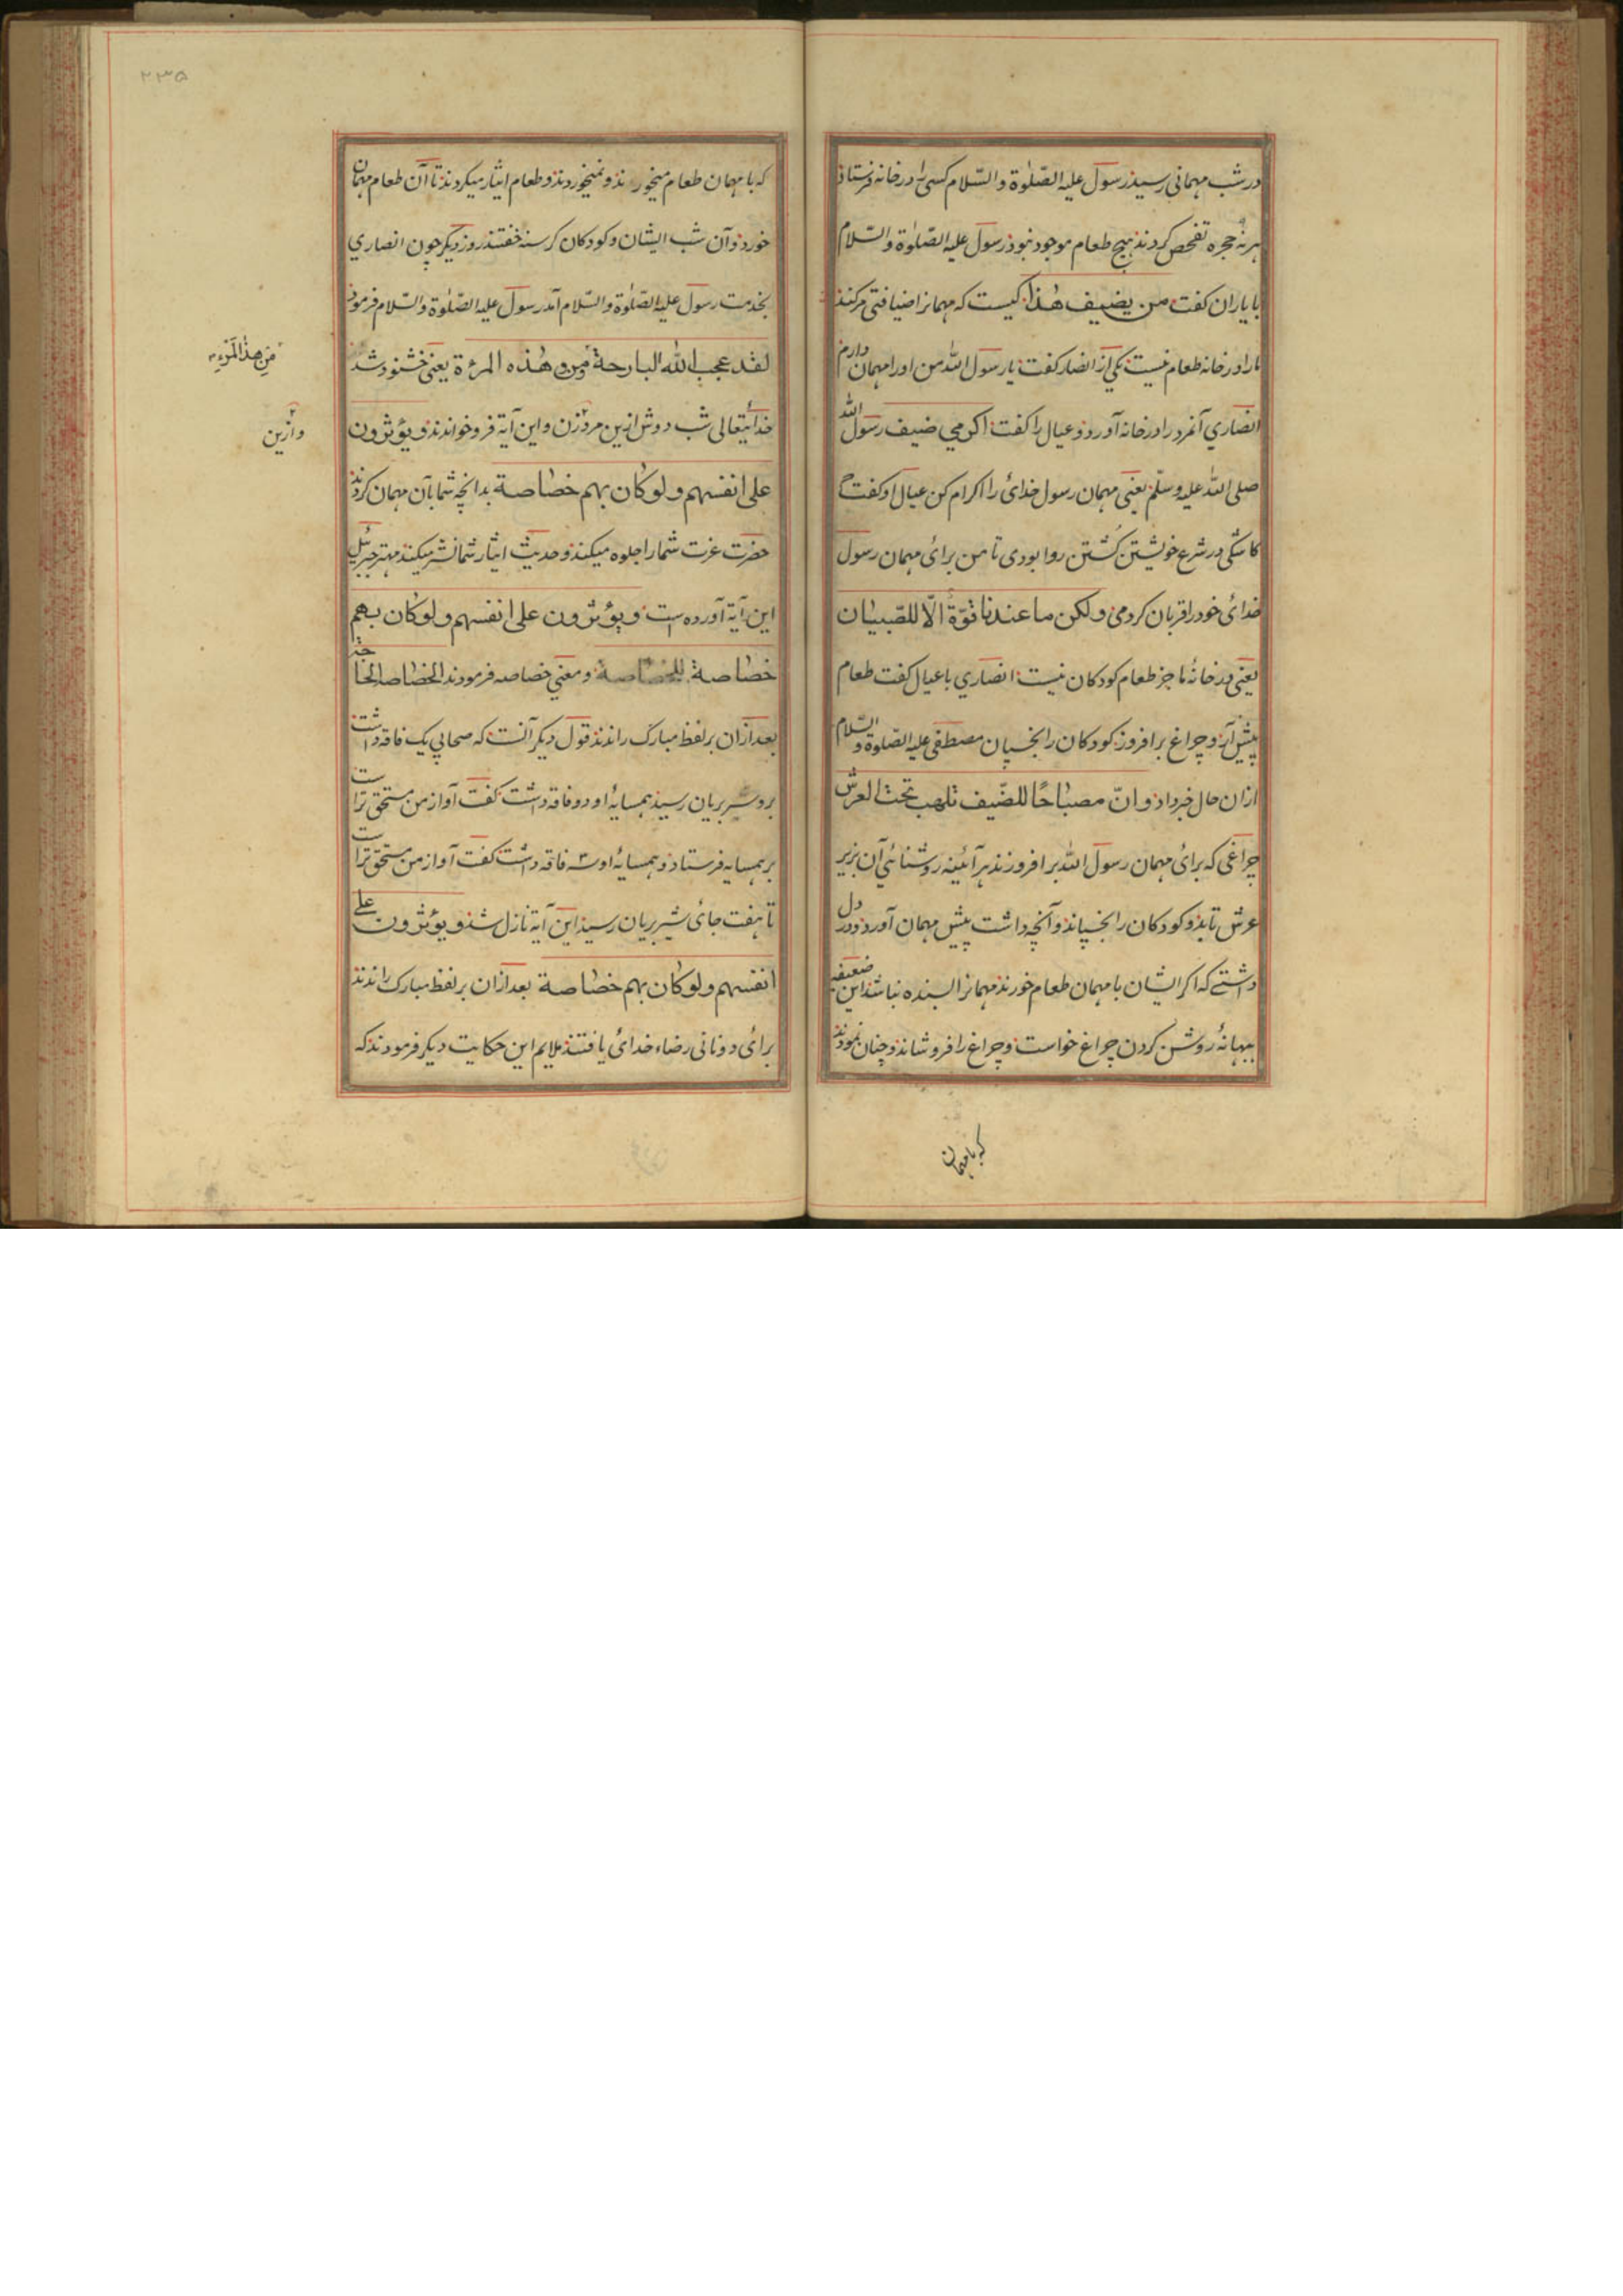 در شب مهمانی رسید رسول علیه الصّلوٰة والسّلام کسی را در خانه فرستاد
هر نه حجره تفحص کردند هیچ طعام موجود نبود رسول علیه الصّلوٰة والسّلام
با یاران کفت من یضیف هٰذا کیست که مهمانرا ضیافتی کند
ما را در خانه طعام نیست یکی از انصار کفت یا رسول الله من او را مهمان دارم
انصاری آنمرد را در خانه آورد و عیال را کفت اکرمی ضیف رسول الله
صلی الله علیه وسلّم یعنی مهمان رسول خدائ را اکرام کن عیال او کفت
کاشکی در شرع خویشتن کُشتن روا بودی تا من برائ مهمان رسول
خدائ خود را قربان کردمی ولکن ما عندنا قوّة الّا للصّبیان
یعنی در خانهٔ ما جز طعام کودکان نیست انصاری با عیال کفت طعام
پیش آر و چراغ برافروز کودکان را بخسپان مصطفی علیه الصّلوة والسّلام
ازان حال خبر داد وانّ مصباحًا للضّیف تلهب تحت العرش
چراغی که برائ مهمان رسول الله برافروزند هر آئینه روشنائی آن بزیر
عرش تابد و کودکان را بخسپاند و آنچه داشت پیش مهمان آورد و در دل
داشتی که اکر ایشان با مهمان طعام خورند مهمانرا بسنده نباشد این ضعیفه
ببهانهٔ روشن کردن چراغ خواست و چراغ را فروشاند و چنان نمودند
که با مهمان
۲۳۵
که با مهمان طعام میخورند و نمیخوردند و طعام ایثار میکردند تا آن طعام مهمان
خورد و آن شب ایشان و کودکان کرسنه خفتند روز دیکر چون انصاری
بخدمت رسول علیه الصّلوٰة والسّلام آمد رسول علیه الصّلوٰة والسّلام فرمود
لقد عجب الله البارحة من وهٰذه المرءة یعنی خشنود شد
مِن هذا المَرْءِ
خدائیتعالی شب دوش ازین مرد زن و این آیة فرو خواندند ویؤثرون
وازین
علی انفسهم ولو کان بهم خصاصة بدانچه شما بآن مهمان کردند
حضرت عزت شما را جلوه میکند و حدیث ایثار شما نشر میکند مهتر جبرئیل
این آیة آورده است ویؤثرون علی انفسهم ولو کان بهم
خصاصة و معنی خصاصه فرمودند الخصاصه الحاجة
بعد ازان بر لفظ مبارک راندند قول دیکر آنست که صحابی یک فاقه داشت
برو سر بریان رسید همسایهٔ او دو فاقه داشت کفت آواز من مستحق تر است
بر همسایه فرستاد و همسایهٔ او سه فاقه داشت کفت آواز من مستحق تر است
تا هفت جائ سر بریان رسید این آیة نازل شد ویؤثرون علی
انفسهم ولو کان بهم خصاصة بعد ازان بر لفظ مبارک راندند
برائ دو نانی رضاء خدائ یافتند ملایم این حکایت دیکر فرمودند که